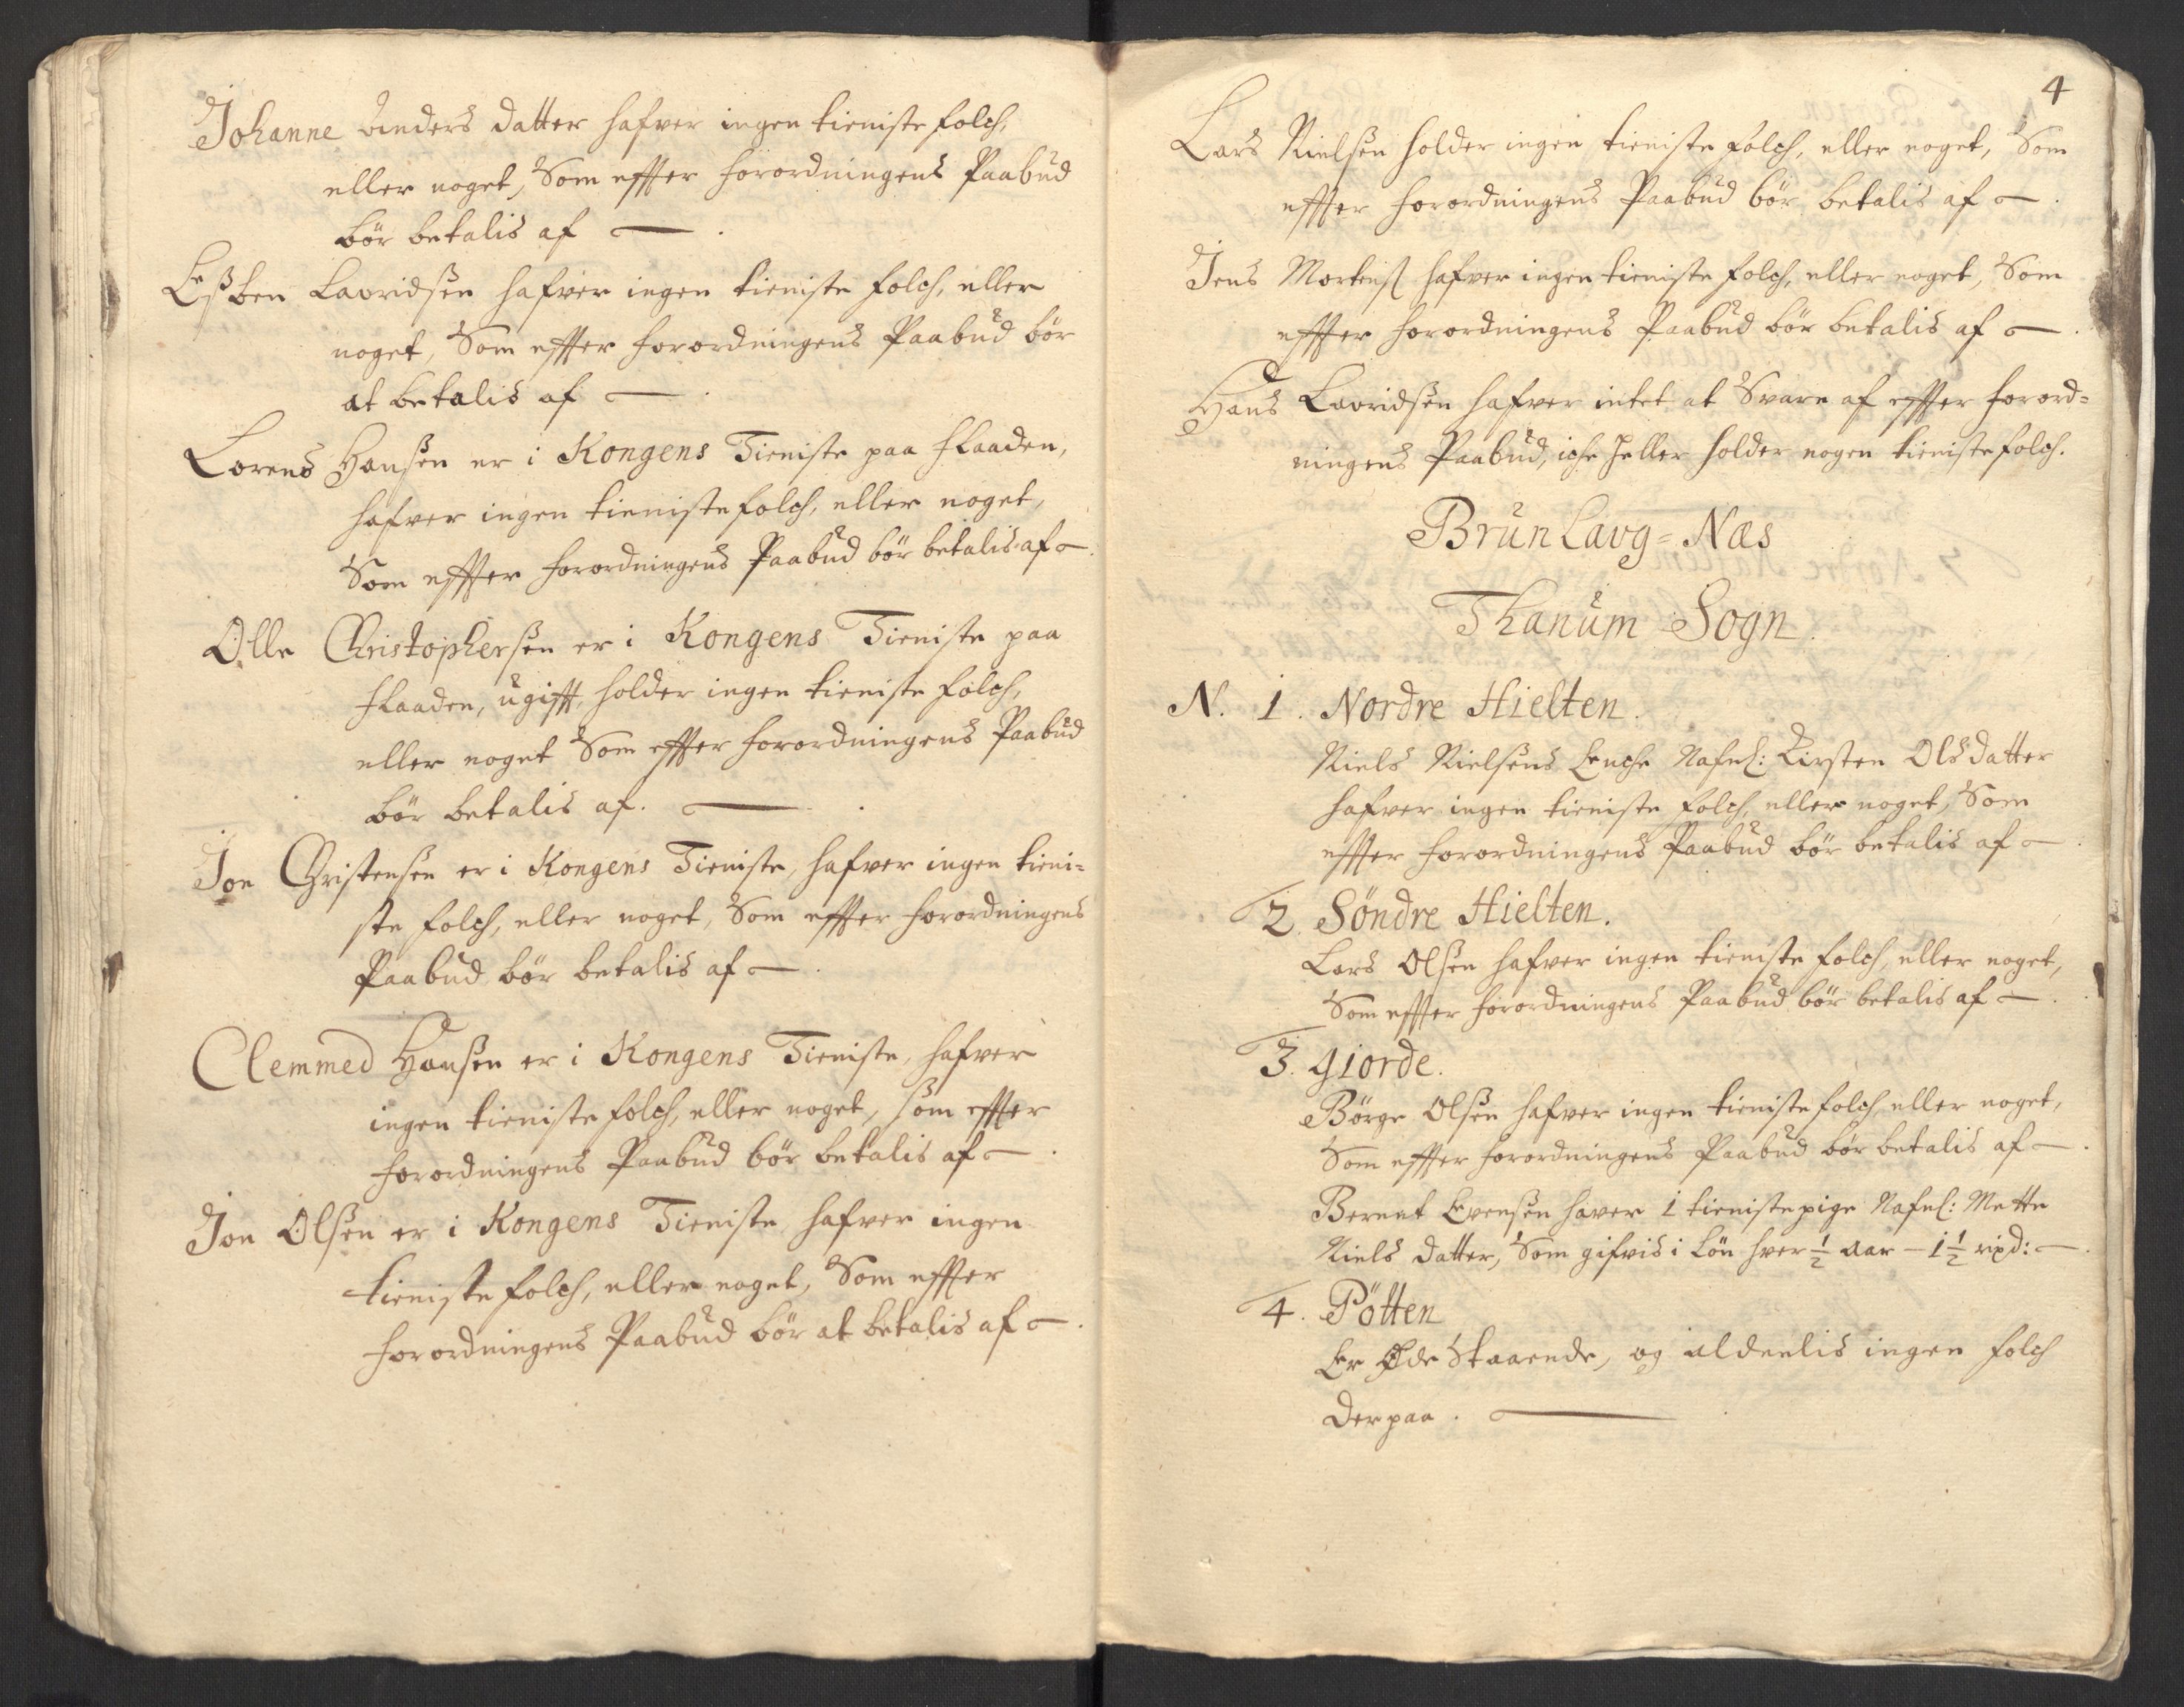 Johanne Anders datter hafver ingen tieniste folch,
eller noget, Som effter forordningens Paabud
bör betalis af —.
Eßben Lavridsen hafver ingen tieniste folch, eller
noget, Som effter forordningens Paabud bör
at betalis af —.
Lorens Hansen er i Kongens Tieniste paa flaaden,
hafver ingen tieniste folch, eller noget,
Som effter forordningens Paabud bör betalis af —.
Olle Christophersen er i Kongens Tieniste paa
flaaden, ugifft, holder ingen tieniste folch,
eller noget Som effter forordningens Paabud
bör betalis af. —.
Jon Christensen er i Kongens Tieniste, hafver ingen tieni-
ste folch, eller noget, Som effter forordningens
Paabud bör betalis af —.
Clemmed Hansen er i Kongens Tieniste, hafver
ingen tieniste folch, eller noget, som effter
forordningens Paabud bör betalis af —.
Jon Olsen er i Kongens Tieniste, hafver ingen
tieniste folch, eller noget, Som effter
forordningens Paabud bör at betalis af —.
4
Lars Nielsen holder ingen tieniste folch, eller noget, Som
effter forordningens Paabud bör betalis af —.
Jens Mortenß hafver ingen tieniste folch, eller noget, Som
effter forordningens Paabud bör betalis af —.
Hans Lavridsen hafver intet at Svare af effter forord=
ningens Paabud, iche heller holder nogen tieniste folch.
Brunlavg=Næs
Thanum Sogn.
N. 1. Nordre Hielten.
Niels Nielsens Enche Nafnl: Kirsten Olsdatter
hafver ingen tieniste folch, eller noget, Som
effter forordningens Paabud bör betalis af —.
2. Söndre Hielten.
Lars Olsen hafver ingen tieniste folch, eller noget,
Som effter forordningens Paabud bör betalis af —.
3. Giorde.
Börge Olsen hafver ingen tieniste folch, eller noget,
Som effter forordningens Paabud bör betalis af —.
Bernt Evensen haver 1 tieniste pige Nafnl: Mette
Niels datter, Som gifvis i Lön hver ½ aar — 1½ rixd: —.
4. Pötten
Er Øde Staaende, og aldeelis ingen folch
Der paa. —